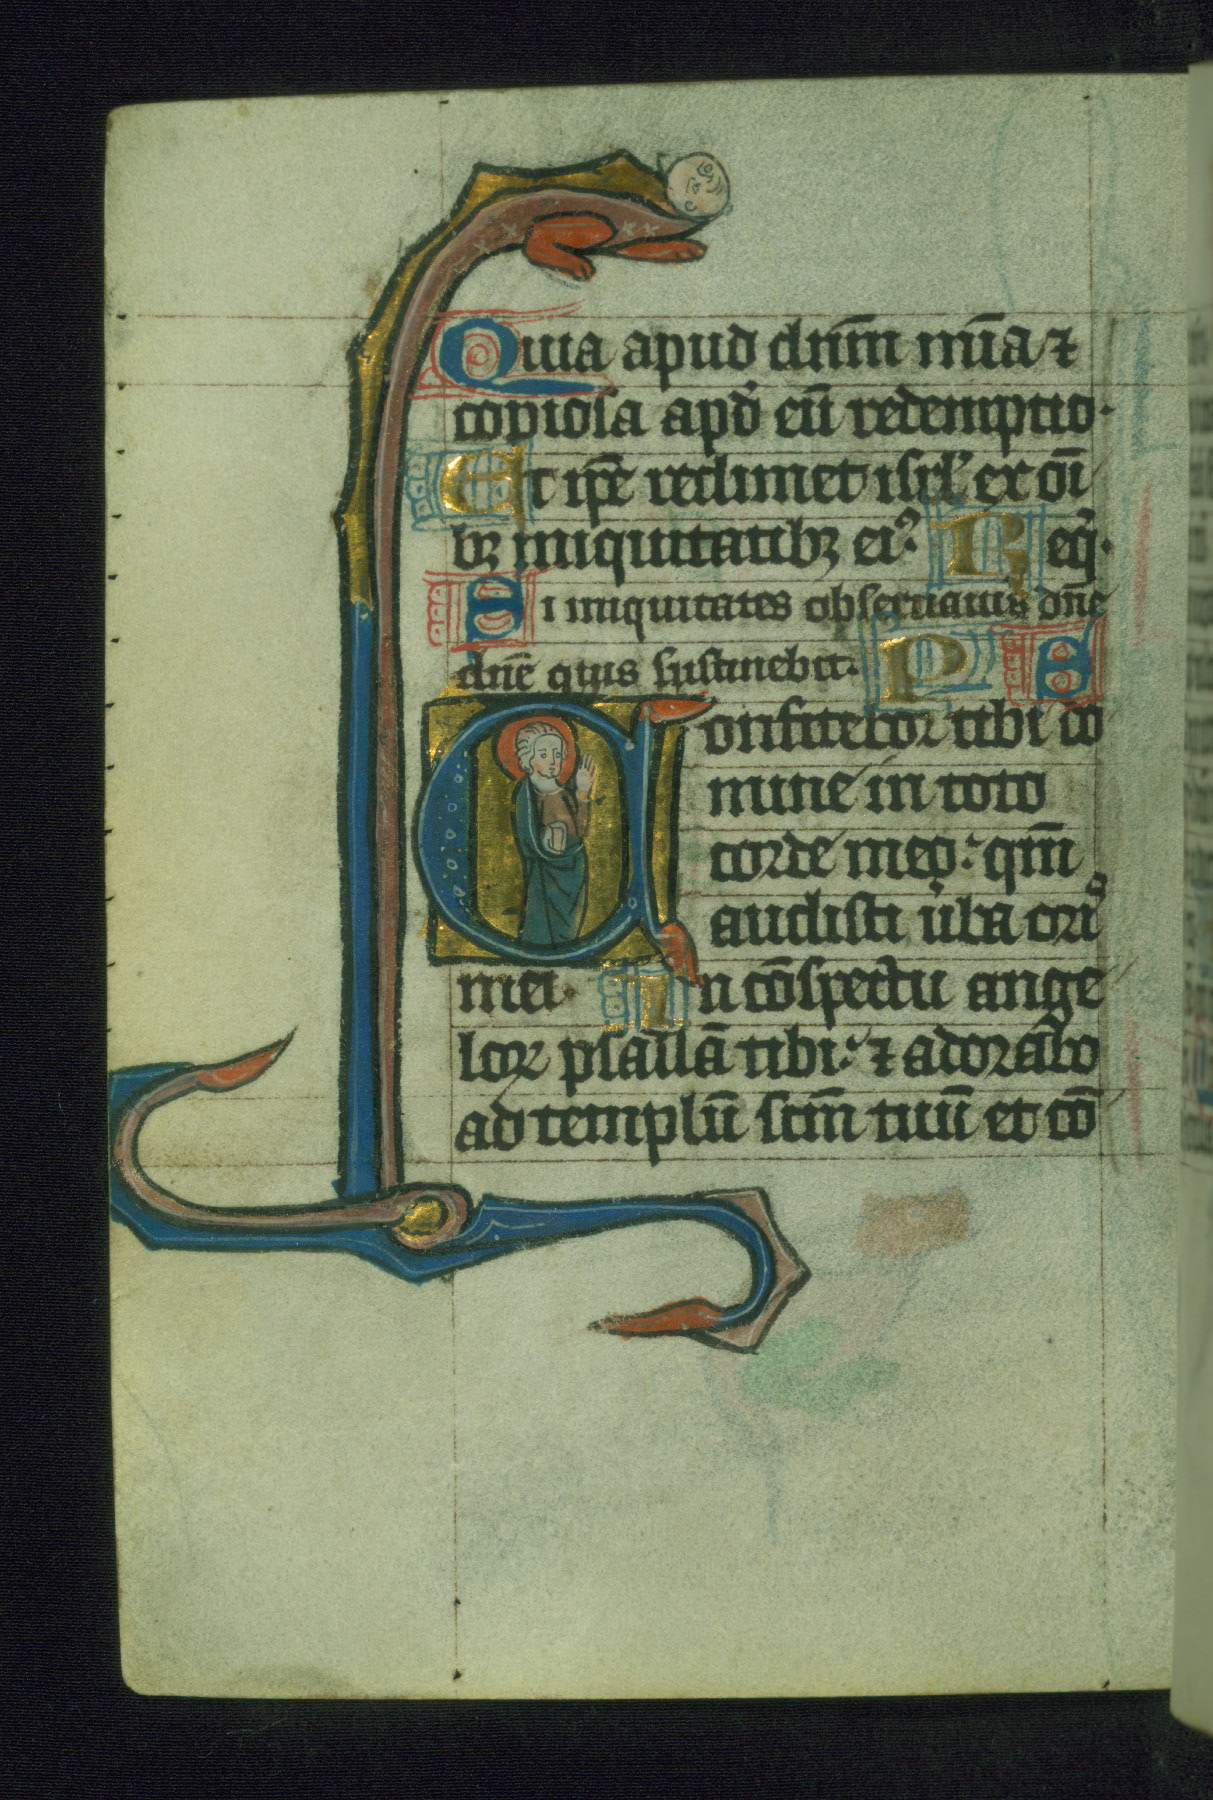 Quia apud dn̄m mīa ⁊
copiosa apd̕ eū redemptio·
Et ip̄e redimet isrl̕ ex oī
bꝫ iniquitatibꝫ eiꝰ· Req̄·
Si iniquitates obseruauis dn̄e
dn̄e quis sustinebit· P S
Confitebor tibi do
mine in toto
corde meo· qm̄
audisti u̇ba ori᷒
mei· In cōspectu ange
loꝝ psallā tibi· ⁊ adorabo
ad templū scm̄ tuū et cō